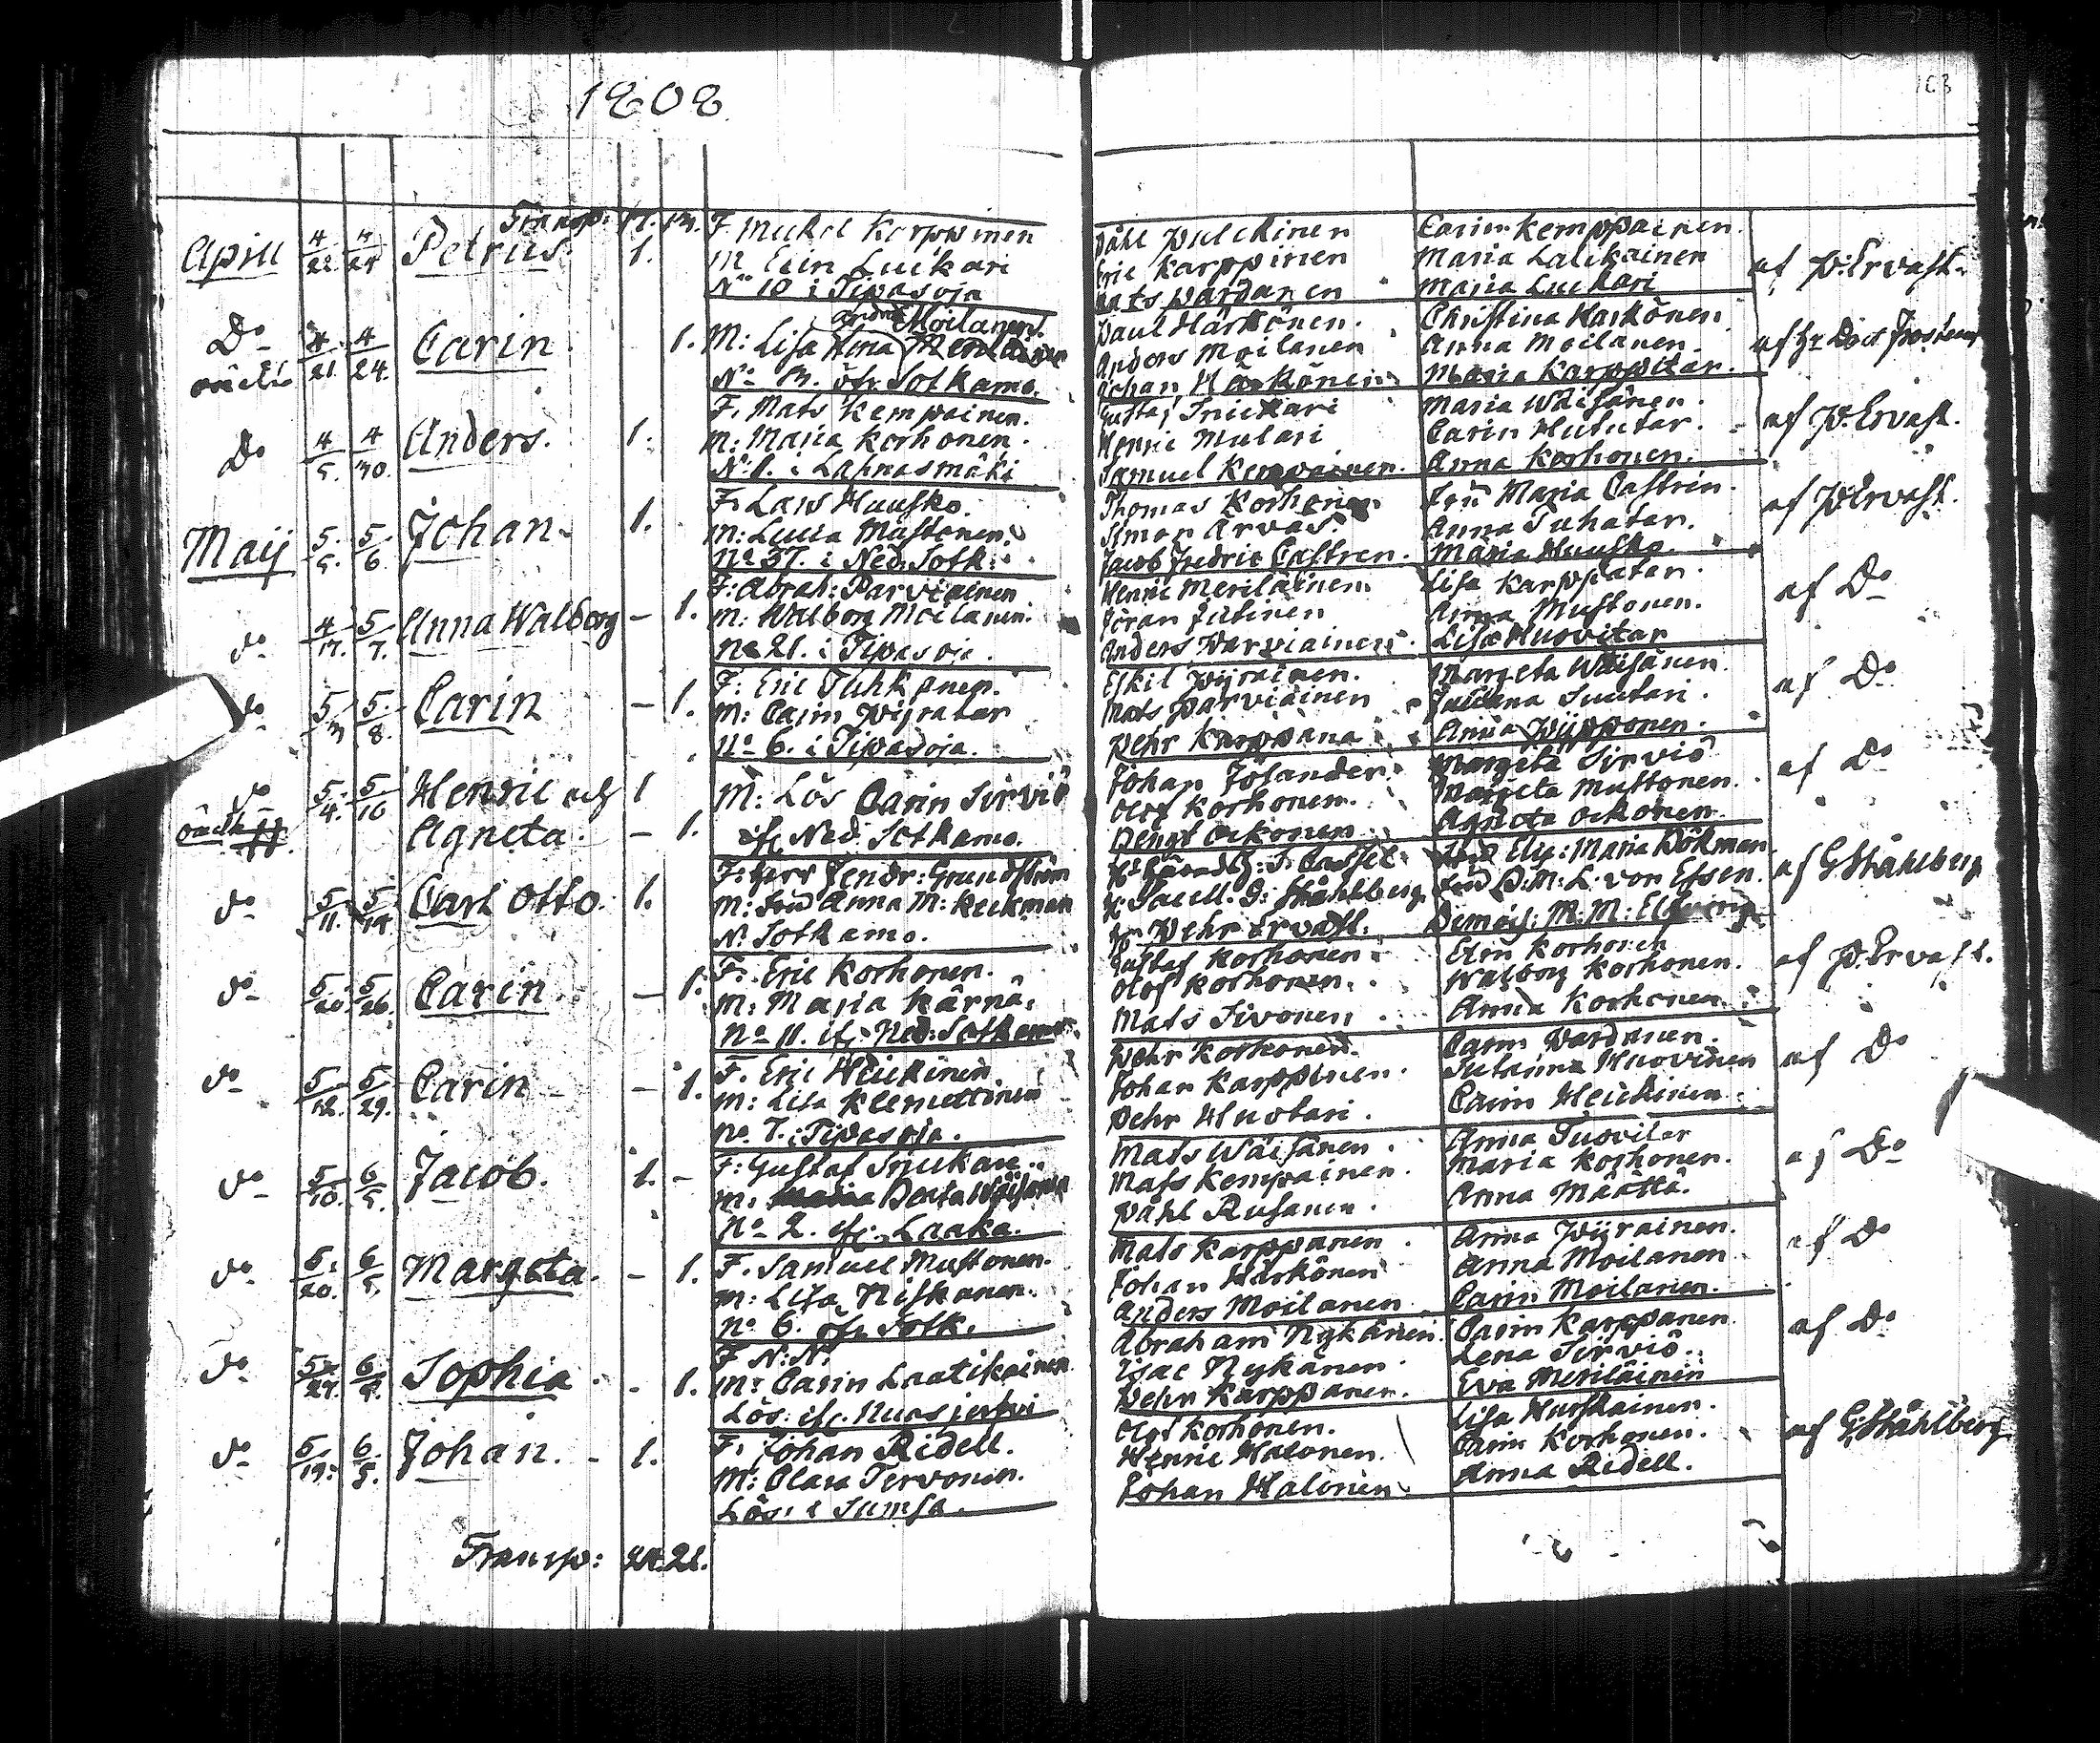 1808
168
Transp: 17. 13.
Apill 4/22 4/24 Petrus. 1.
F. Mickel Karppinen
M Elin Luckari
No 10 i Tipasoja
Påhl Pulckinen
Eric Karppinen
Mats Pardanen
Carin Kemppainen.
Maria Lalikainen
Maria Luckari
af P. Ervast.
Do 4/21 4/24. Carin 1.
oäckta
Moilanens
M: Lisa
No 13. öfr Sotkamo.
Paul Härkönen.
Anders Moilanen
Johan Härkönen
Christina Härkönen
Anna Moilanen.
Maria Karppitar.
af Hr Doct
Do 4/5. 4/30. Anders. 1.
F. Mats Kempainen.
M: Maria Korhonen.
No 1. i Lahnasmäki
Gustaf Snickari
Henric Mulari
Samuel Kempainen.
Maria Wäisänen.
Carin Hututar.
Anna Korhonen.
af P. Ervast.
Maij 5/5. 5/6. Johan 1.
F. Lars Huusko.
M: Lucia Mustonen.
No 37. i Ned. Sotk:
Thomas Korhonen
Simon Arvas
Jacob Fredric Castren.
Fru Maria Castrin.
Anna Tuhatar.
Maria Huusko.
af P. Ervast.
do 4/17. 5/7. Anna Walborg - 1.
F: Abrah: Parviainen
M: Walborg Moilanen.
No 21. i Tipasoja.
Henric Meriläinen
Göran Jutinen
Anders Parviainen.
Lisa Karppatar.
Anna Mustonen.
Lisa Huovitar
af Do
do 5/3 5/8. Carin - 1.
F: Eric Tuhkanen.
M: Carin Pijratar
No 6. i Tipasoja.
Eskil Pijrainen.
Mats Parviainen
Pehr Karppana
Margeta Wäisänen.
Juliana Suutari.
Anna Pijpponen.
af Do
do 5/4. 5/16 Henric och 1
oäckta Agneta. - 1.
M: Lös Carin Sirviö
if. Ned. Sotkamo.
Johan Jolander.
Olof Korhonen.
Bengt Ockonen
Margeta Sirviö
Margeta Mustonen.
Agneta Ockonen.
af Do
do 5/11. 5/19. Carl Otto. 1.
F: Herr Fendr: Grundström
M: Fru Anna M: Keckman
N. Sotkamo.
Hr Sacell. G: Ståhlberg.
Hr Pehr Ervast.
Fru Elis: Maria Bökman
Fru B: M: L. von Essen.
Demois: M. M:
af G Ståhlberg
do 5/20. 5/26. Carin - 1.
F. Eric Korhonen.
M: Maria Kärnä.
No 11. if. Ned: Sotkamo.
Gustaf Korhonen.
Olof Korhonen.
Mats Sivonen
Elin Korhonen
Walborg Korhonen.
Anna Korhonen.
af P. Ervast.
do 5/12. 5/29. Carin - 1.
F. Eric Heickinen
M: Lisa Klemettinen
No. 7. i Tipasoja.
Pehr Korhonen.
Johan Karppinen.
Pehr Huotari.
Carin Pardanen.
Susanna Huovinen
Carin Heickinen.
af Do
do 5/10. 6/5. Jacob. 1. -
F: Gustaf Snickare.
M: Beata Wäisänen
No 2. if. Laaka.
Mats Wäisänen.
Mats Kempainen.
Påhl Rusanen.
Anna Tuovitar
Maria Korhonen.
Anna Määttä.
af Do
do 5/20. 6/5. Margeta. - 1.
F. Samuel Mustonen.
M: Lisa Niskanen.
No 6. öfr Sotk.
Mats Karppanen
Johan Härkönen
Anders Moilanen
Anna Pijrainen.
Anna Moilanen
Carin Moilanen.
af Do
do 5/27. 6/5. Sophia. - 1.
F N: N:
M: Carin Laatikainen
Lös. if. Nuasjerfvi
Abraham Nykänen
Isac Nykänen.
Pehr Karppanen.
Carin Karppanen
Lena Sirviö.
Eva Meriläinen
af Do
do 5/19. 6/5. Johan. - 1.
F. Johan Ridell.
M: Clara Tervonen.
Lös. i Sumsa.
Olof Korhonen.
Henric Halonen.
Johan Halonen.
Lisa Huuskainen.
Carin Korhonen.
Anna Ridell.
af G Ståhlberg
Transp: 24. 21.